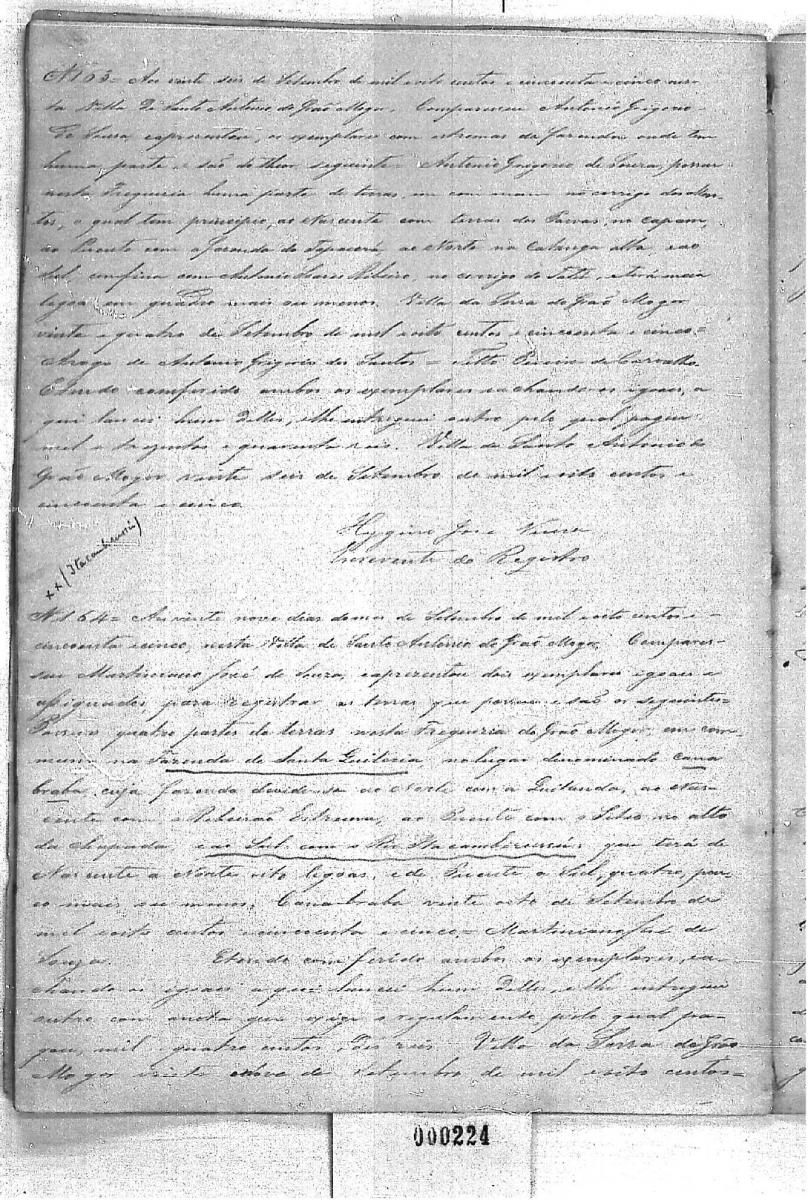 N 163 = Aos vinte seis de Setembro de mil eoito centos e cincoenta e cinco nes
ta Villa de Santo Antonio do Grão Mogor, Compareceu Antonio Grigorio
de Souza, eaprezentou, os exemplares com estremas da Fazenda onde tem
huma parte, e são do theor seguinte Antonio Grigorio de Souza, possue
nesta Freguezia huma parte de terras, em com mum no corrigo dos
tos, o qual tem principio, ao Nascente com terras dos no capam,
ao Puente com a fazenda do ao Norte na Catinga alta, eao
Sul confina com Antonio Soares Ribeiro, no corrigo do eterá meia
legoa em quadro mais ou menos. Villa da Serra do Grão Mogor
vinte e quatro de Setembro de mil eoito centos e cincoenta e cinco =
Arogo de Antonio Grigorio dos Santos = Pereira de Carvalho
Etendo comferido ambos os exemplares eachando os igoaes, a
qui lancei hum Delles, elhe entreguei outro pelo qual pagou
mil e trezentos e quarenta reis. Villa de Santo Antonio do
Grão Mogor vinte seis de Setembro de mil eoito centos e
cincoenta e cinco
Hygino José Vieira
Escrevente do Registro
xx (Itacambirussú)
N 164 = Aos vinte nove dias domes de Setembro de mil eoito centos e
cincoenta ecinco, nesta Villa de Santo Antonio do Grão Mogor, Compares-
seu Martiniano José de Souza, eaprezentou dois exemplares igoaes e
assignados para registrar as terras que possue e são os seguintes =
Possuo quatro partes de terras nesta Freguezia do Grão Mogor, em com
mum na Fazenda de Santa Quiteria, nolugar denominado cana
braba, cuja fazenda devide-se ao Norte com a Quitanda, ao Nas-
cente com o Ribeirão Estrema, ao Puente com o no alto
da chapada, eao Sul com o Rio Itacambirussú; que terá de
Nascente a Norte oito legoas, e de Puente a Sul, quatro, pou-
co mais ou menos. Cana braba vinte oito de Setembro de
mil eoito centos e cincoenta e cinco = Martiniano José de
Souza. Etendo comferido ambos os exemplares, ea-
chando os igoaes aqui lancei hum Delles, e lhe entreguei
outro com anota que exige o regulamento, pelo qual pa-
gou, mil quatro centos e dez reis. Villa da Serra do Grão
Mogor vinte nove de Setembro de mil eoito centos =
000224